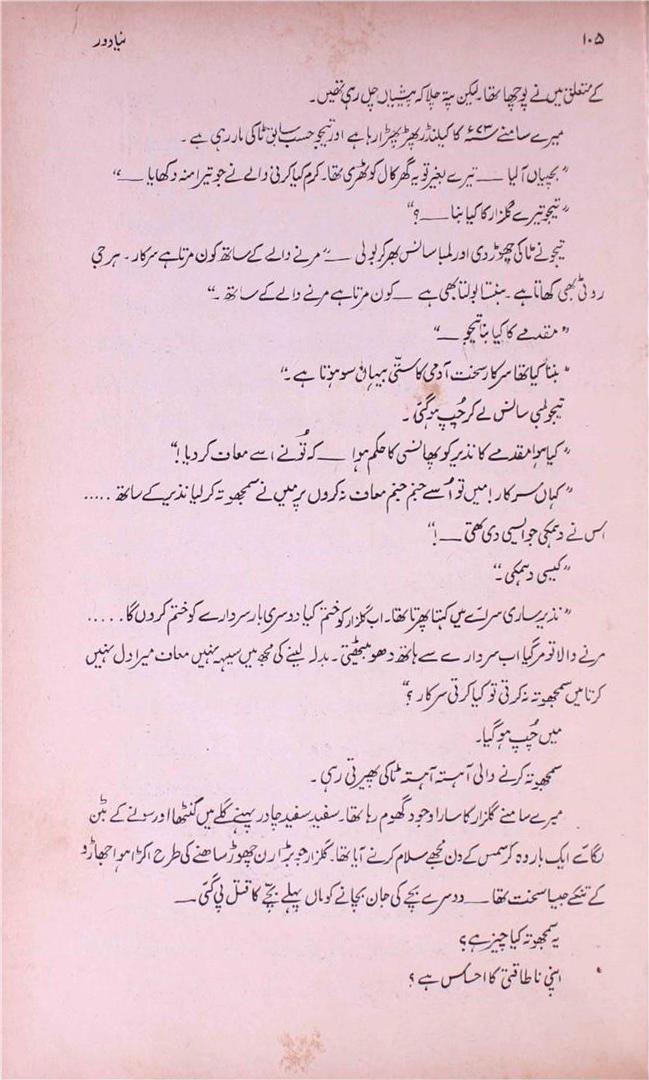 ۱۰۵
نیا دور
کے متعلق میں نے پوچھا تھا۔ لیکن پتہ چلا کہ پیشیاں چل رہی تھیں۔
میرے سامنے ۶۷۳ کا کیلنڈر پھڑ پھڑا رہا ہے اور تیجو حسب سابق ٹاکی مار رہی ہے۔
”بچیاں آ لیا —— تیرے بغیر تو یہ گھر کال کوٹھری تھا۔ کرم کیا کرنی والے نے جو تیرا منہ دکھایا ——“
”تیجو تیرے گلزار کا کیا بنا —— ؟“
تیجو نے ٹاکی چھوڑ دی اور لمبا سانس بھر کر بولی —— ”مرنے والے کے ساتھ کون مرتا ہے سرکار۔ ہر جی
روٹی بھی کھاتا ہے۔ ہنستا بولتا بھی ہے —— کون مرتا ہے مرنے والے کے ساتھ۔“
”مقدمے کا کیا بنا تیجو ——“
”بننا کیا تھا سرکار سخت آدمی کا ستّی بیہاں سو ہوتا ہے۔“
تیجو لمبی سانس لے کر چُپ ہو گئی۔
”کیا ہوا مقدمے کا نذیر کو پھانسی کا حکم ہوا —— کہ تُو نے اسے معاف کر دیا!“
”کہاں سرکار! میں تو اُسے جنم جنم معاف نہ کروں پر میں نے سمجھوتہ کر لیا نذیر کے ساتھ .....
اس نے دھمکی جو ایسی دی تھی —— !“
”کیسی دھمکی۔“
”نذیر ساری سرائے میں کہتا پھرتا تھا۔ اب گلزار کو ختم کیا دوسری بار سردارے کو ختم کر دوں گا .....
مرنے والا تو مر گیا اب سردارے سے ہاتھ دھو بیٹھتی۔ بدلہ لینے کی مجھ میں سیہہ نہیں معاف میرا دل نہیں
کرتا میں سمجھوتہ نہ کرتی تو کیا کرتی سرکار؟“
میں چُپ ہو گیا۔
سمجھوتہ کرنے والی آہستہ آہستہ ٹاکی پھیرتی رہی۔
میرے سامنے گلزار کا سارا وجود گھوم رہا تھا۔ سفید سفید چادر پہنے گلے میں گنٹھا اور سونے کے بٹن
لگائے ایک بار وہ کرسمس کے دن مجھے سلام کرنے آیا تھا۔ گلزار جو بڑا رن چھوڑ ساھنے کی طرح اکڑا ہوا جھاڑو
کے تنکے جیسا سخت تھا —— دوسرے بچے کی جان بچانے کو ماں پہلے بچّے کا قتل پی گئی ——
یہ سمجھوتہ کیا چیز ہے؟
اپنی ناطاقتی کا احساس ہے؟